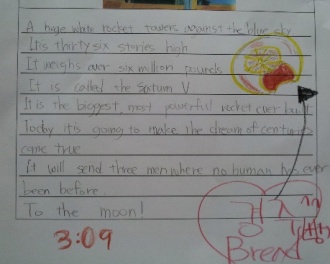 A huge white rocket towers against the blue sky
It is thirty six stories high
It weighs over six million pounds
It is called the Saturn V
It is the biggest, most powerful rocket ever built
Today it is going to make the dream of centuries
come true
It will send three men where no human has ever
been before.
To the moon!
3:09
Bread